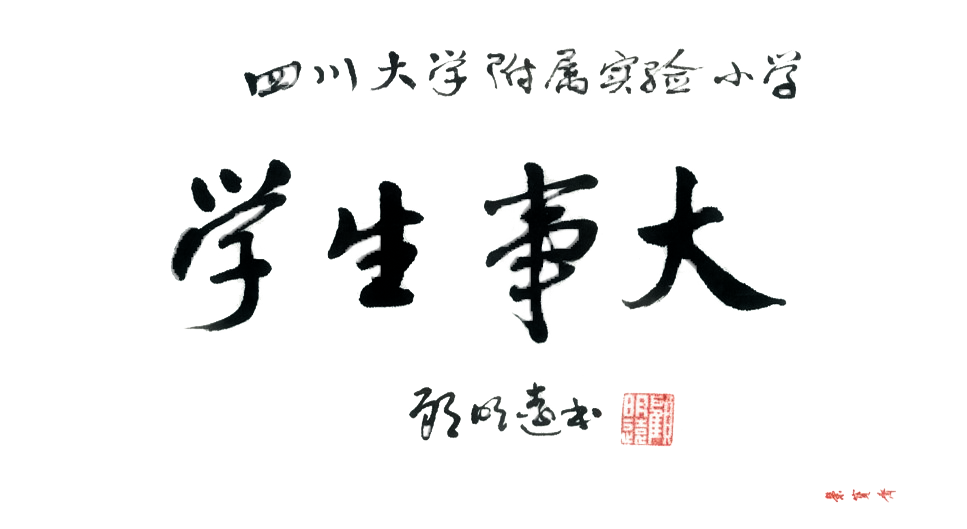 四川大学附属实验小学
学生事大
顾明远书
顧明遠